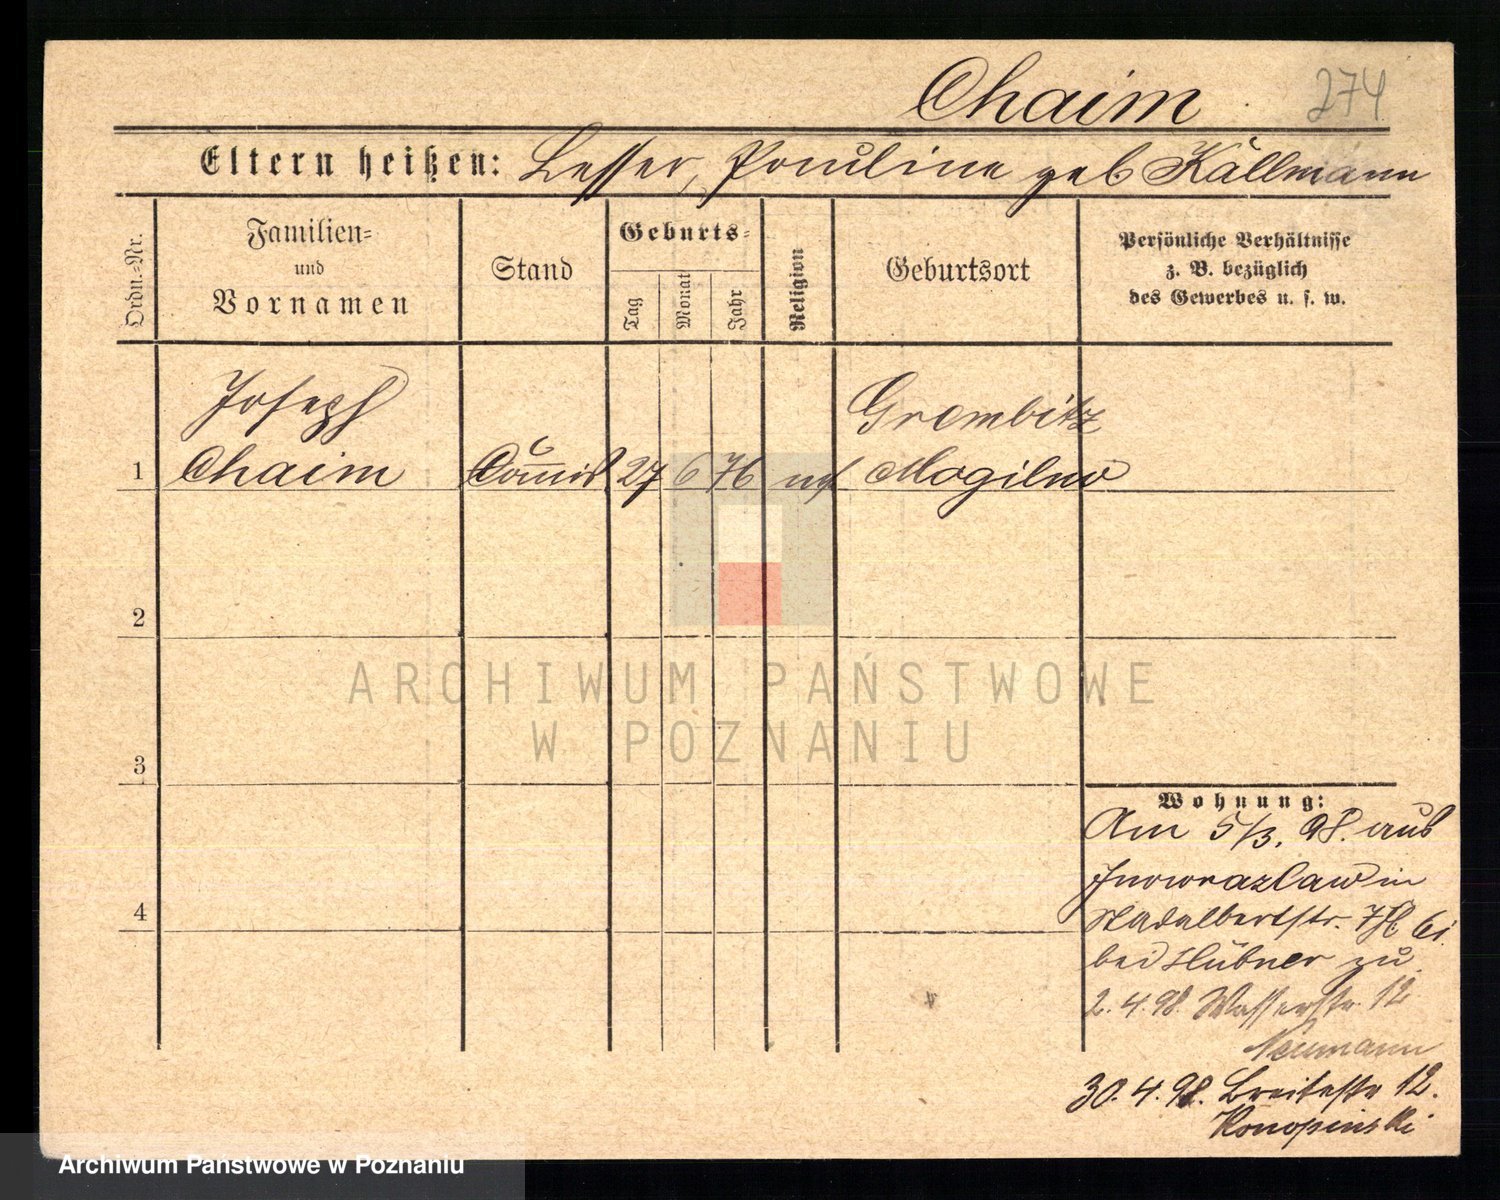 Chaim 274
Eltern heißen: Lesser, Pauline geb Källmann
Ordn.-Nr.
Familien-
und
Vornamen
Stand
Geburts-
Tag
Monat
Jahr
Religion
Geburtsort
Persönliche Verhältnisse
z. B. bezüglich
des Gewerbes u. s. w.
Joseph Grembitz
1 Chaim Commis 27 6 76 Mogilno
2
ARCHIWUM PAŃSTWOWE
W POZNANIU
3
Wohnung:
Am 5/3. 98. aus
Inowrazlaw in
4
bei Hübner zu
2. 4. 98. Wasserstr. 12
Neumann
30. 4. 98. Breitestr 12.
Konopinski
Archiwum Państwowe w Poznaniu